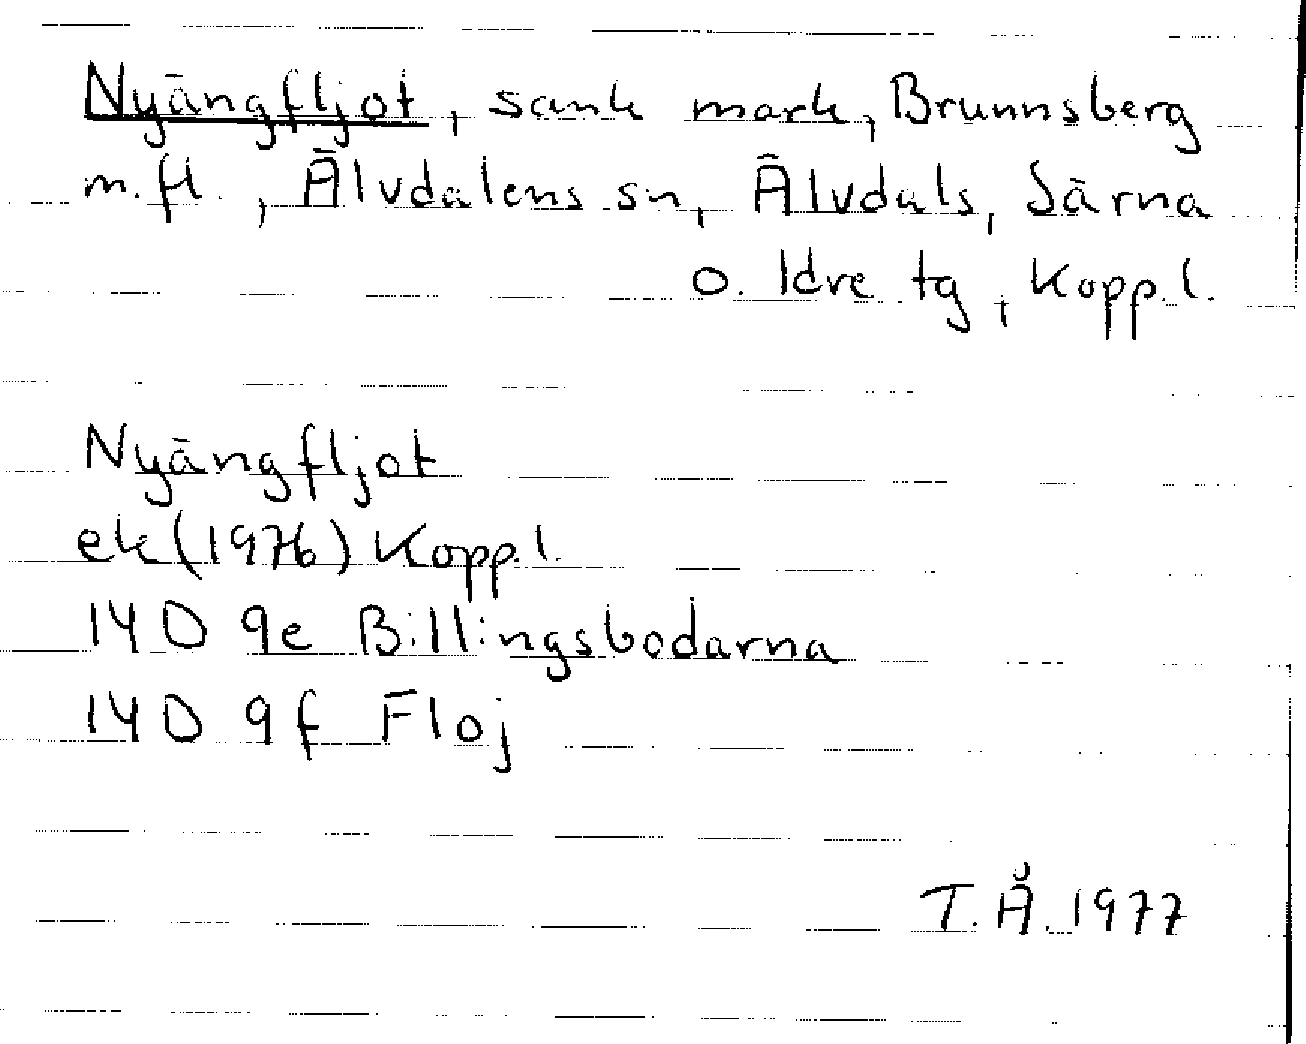 Nyängfljot, sank mark, Brunnsberg
m.fl., Älvdalens sn, Älvdals, Särna
o. Idre tg, Kopp.l.
Nyängfljot
ek (1976) Kopp.l.
14D 9e Billingsbodarna
14D 9f Floj
T.Å. 1977